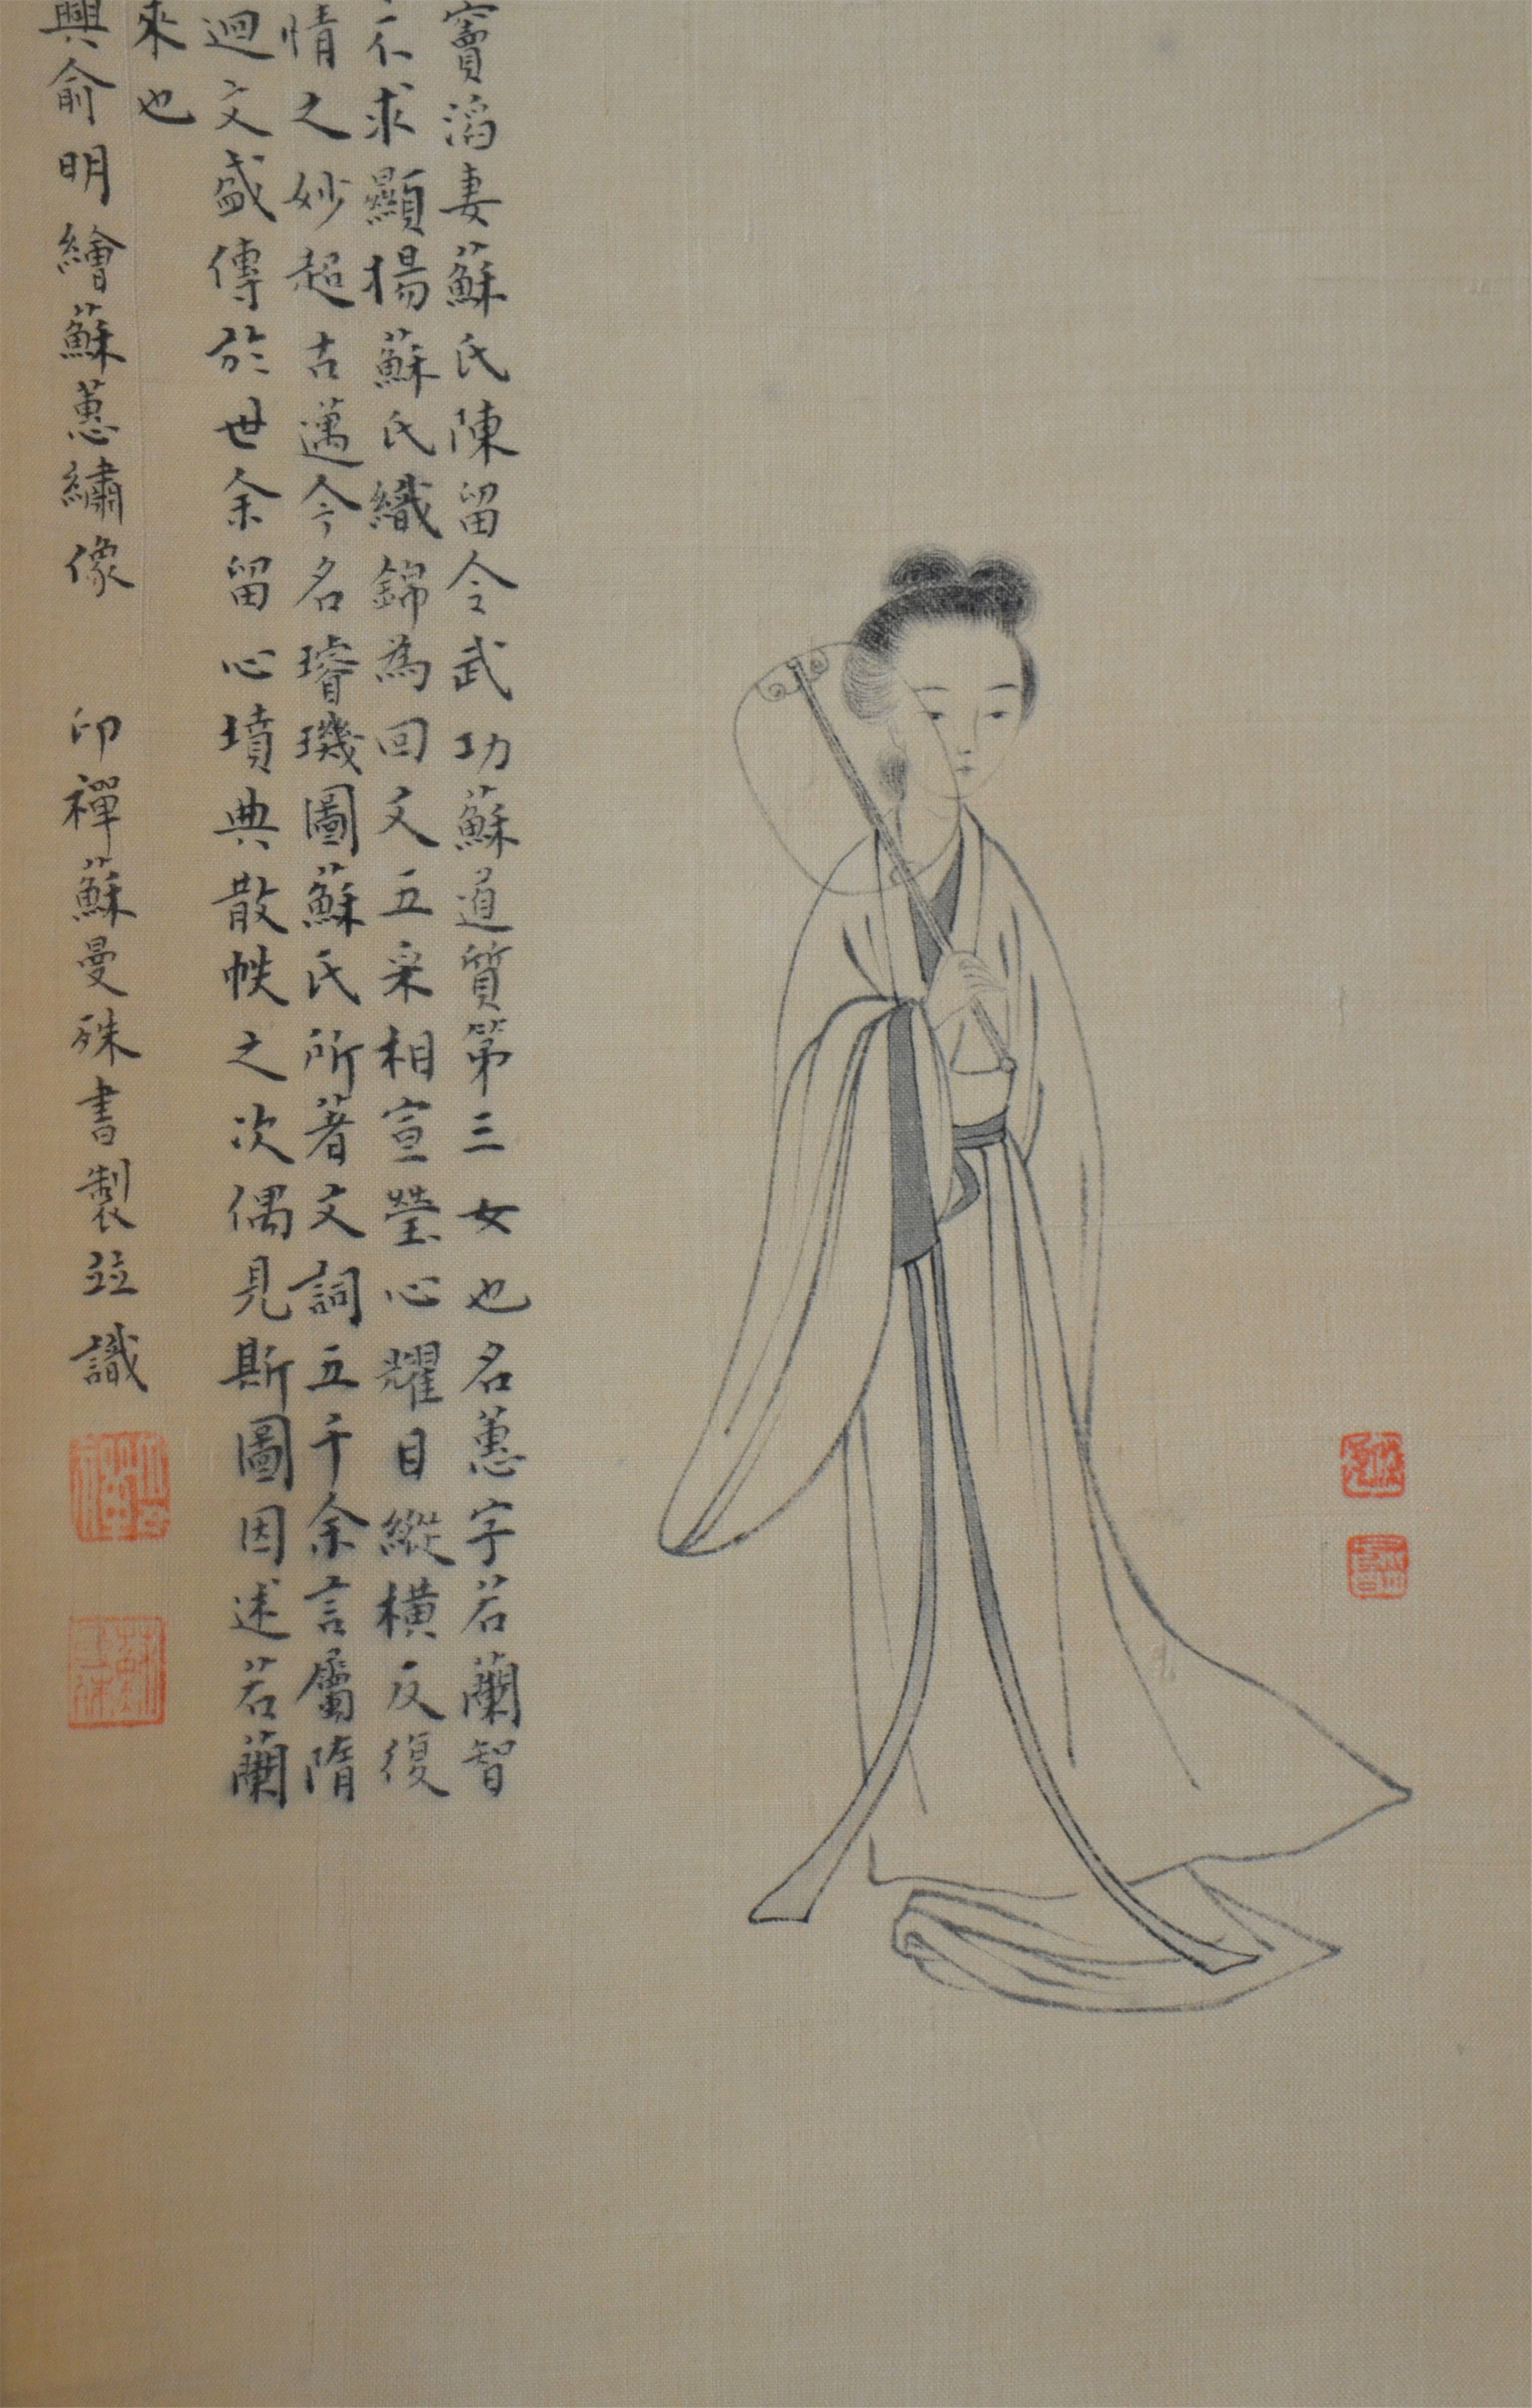 竇滔妻蘇氏陳留令武功蘇道質第三女也名蕙字若蘭智
不求顯揚蘇氏織錦為回文五采相宣瑩心耀目縱橫反復
情之妙超古邁今名璿璣圖蘇氏所著文詞五千余言屬隋
迴文盛傳於世余留心墳典散帙之次偶見斯圖因述若蘭
來也
興俞明繪蘇蕙繡像 印禪蘇曼殊書製竝識